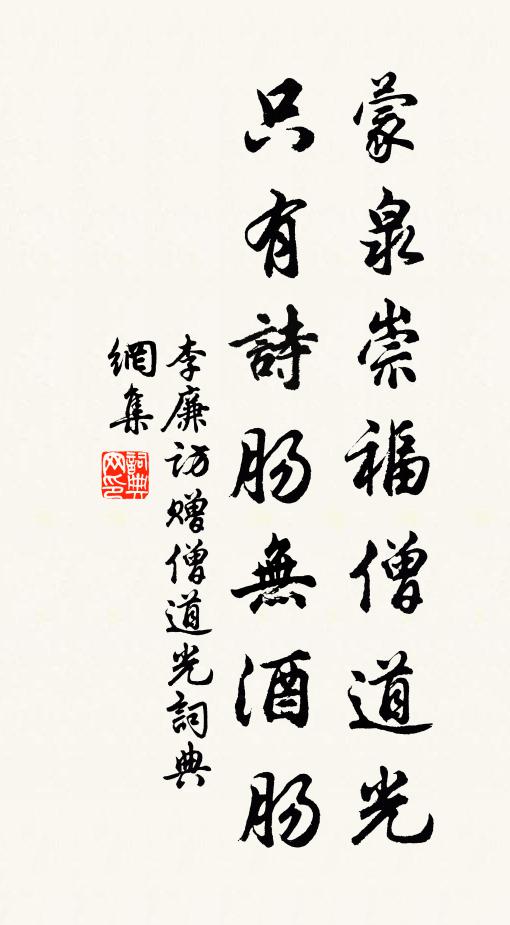 蒙泉崇福僧道光
只有詩肠無酒肠
李廉访赠僧道光詞典
網集
詞典
网印